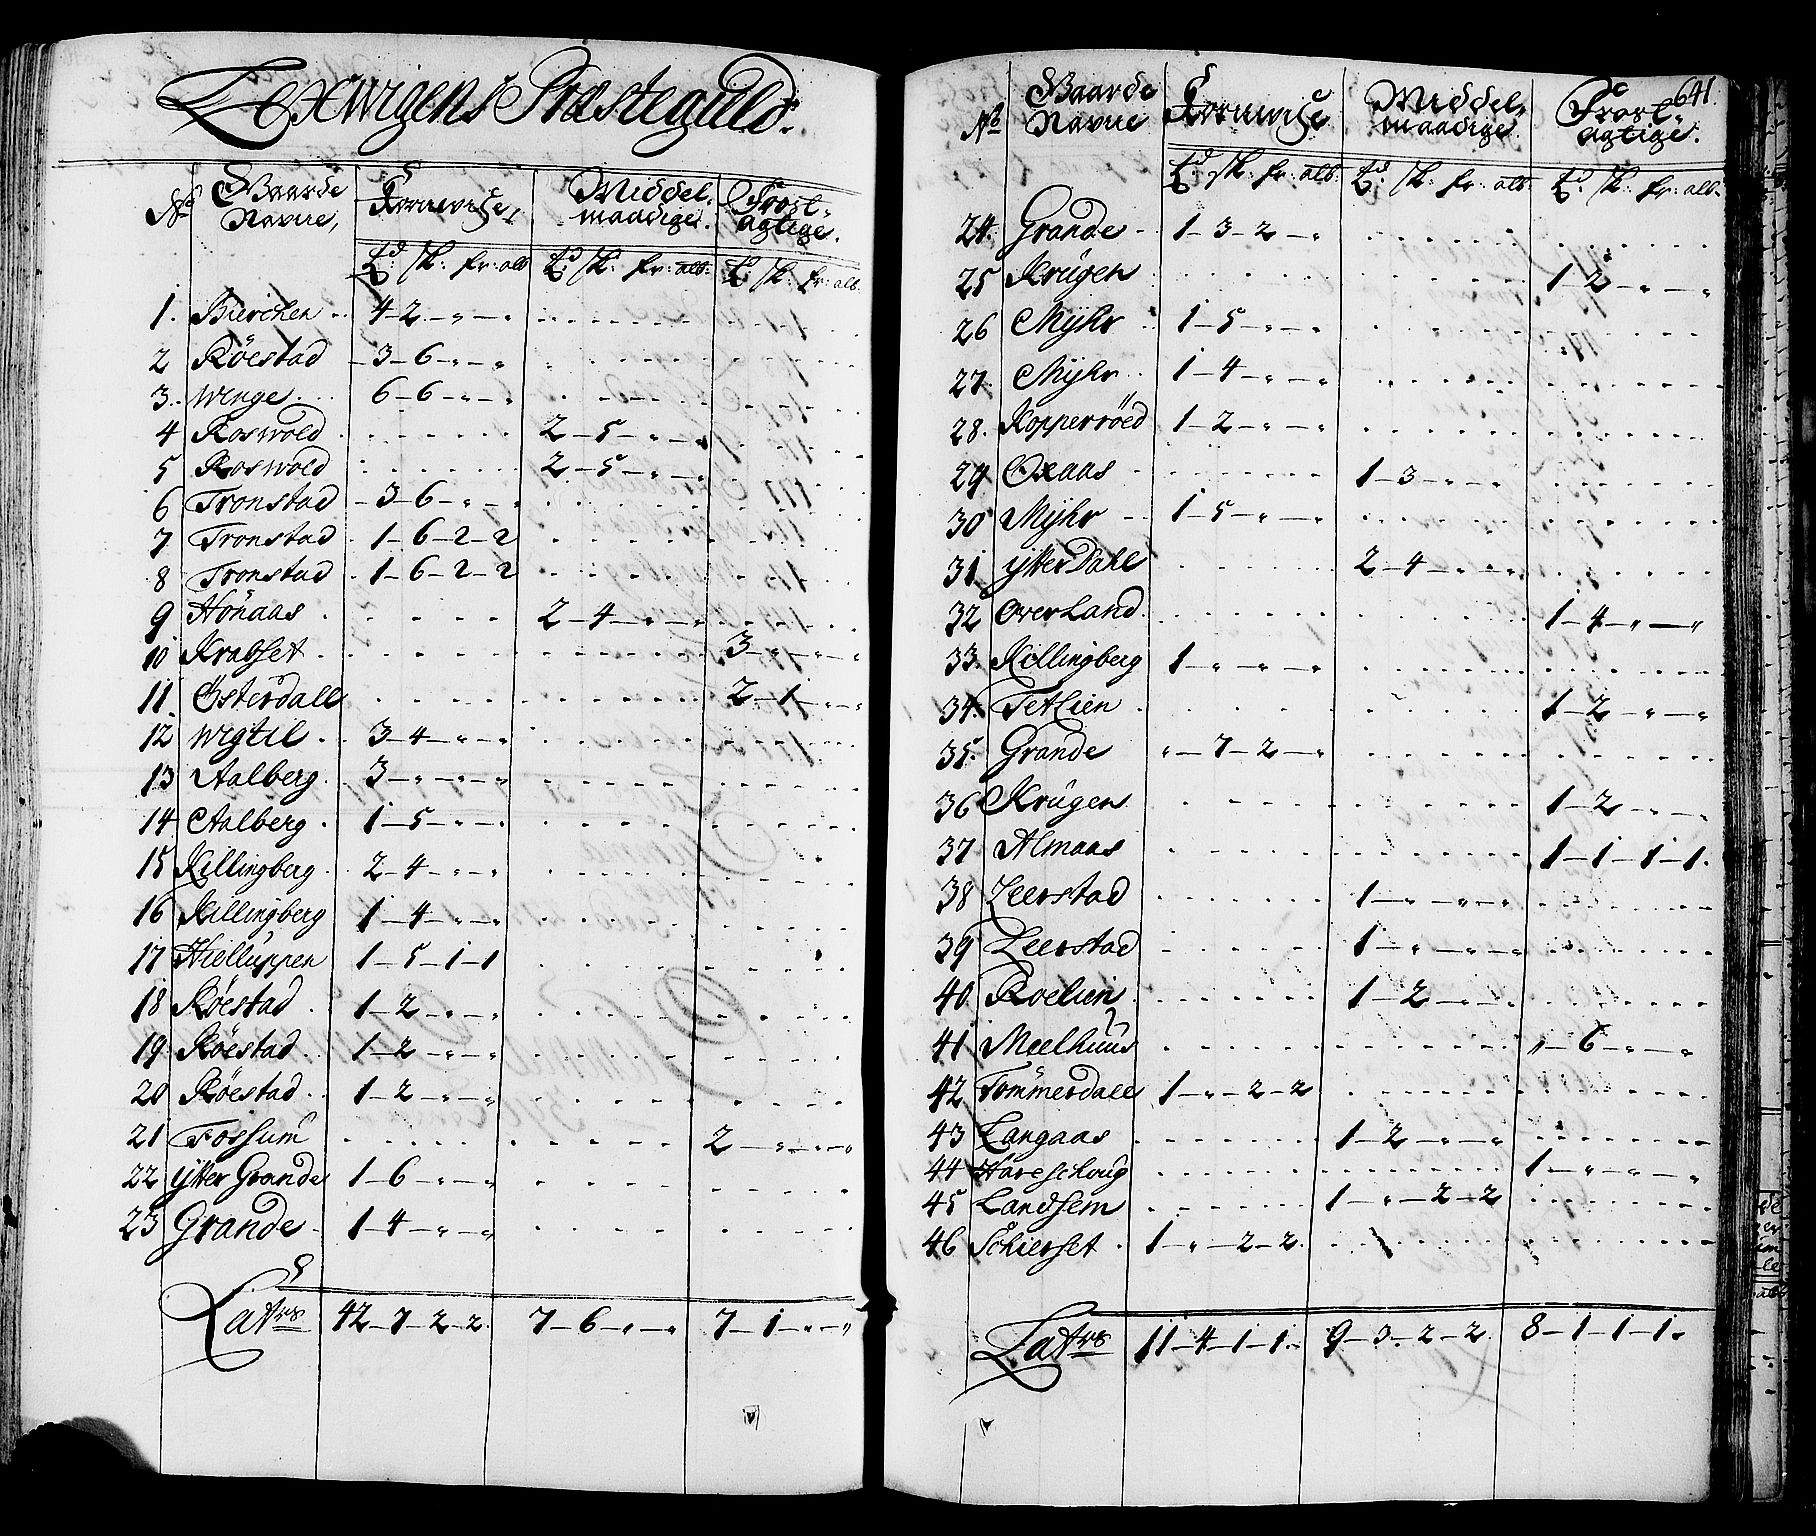 Lexwigens Præstegield.
No Gaarde Navne, Kornwise, Middel maadige. Frost agtige.
Td: sk: fr: alb Td: sk: fr: alb: Td: sk: fr: alb.
1. Bierchen 4-2-"-"
2 Röestad 3-6-"-"
3. Winge 6-6-"-"
4 Roswold 2-5-"-"
5 Roswold 2-5-"-"
6 Tronstad 3-6-"-"
7 Tronstad 1-6-2-2
8 Tronstad 1-6-2-2
9 Hönaas 2-4-"-"
10 Krabset 3-"-"-"
11. Österdall 2-1-"-"
12 Wigtil 3-4-"-"
13 Aalberg 3-"-"-"
14 Aalberg 1-5-"-"
15 Killingberg 2-4-"-"
16 Killingberg 1-4-"-"
17 Hielluppen 1-5-1-1
18 Röestad 1-2-"-"
19 Röestad 1-2-"-"
20 Röestad 1-2-"-"
21 Fossum 2-"-"-"
22 ytter Grande 1-6-"-"
23 Grande 1-4-"-"
Latrs 42-7-2-2. 7-6-"-" 7-1-"-"
641.
No Gaarde Navne Kornwise Middel maadige Frost agtige.
Td: sk: fr: alb: Td: sk: fr: alb Td: sk: fr: alb.
24. Grande 1-3-2-"
25 Krügen 1-2-"-"
26 Myhr 1-5-"-"
27. Myhr 1-4-"-"
28. Kopperröed 1-2-"-"
29 Oxaas 1-3-"-"
30 Myhr 1-5-"-"
31 ytter Dahl 2-4-"-"
32 Overland 1-4-"-"
33. Killingberg 1-"-"-"
34. Tetlien 1-2-"-"
35. Grande "-7-2-"
36 Krügen 1-2-"-"
37 Almaas 1-1-1-1.
38 Leerstad 1-"-"-"
39 Leerstad 1-"-"-"
40. Roelien 1-2-"-"
41 Meelhuus "-6-"-"
42 Tömmerdall 1-"-2-2
43 Langaas 1-2-"-"
44 Hareschoug 1-"-"-"
45 Landsem 1-"-2-2
46 Schierset 1-"-2-2.
Latrs 11-4-1-1. 9-3-2-2. 8-1-1-1.